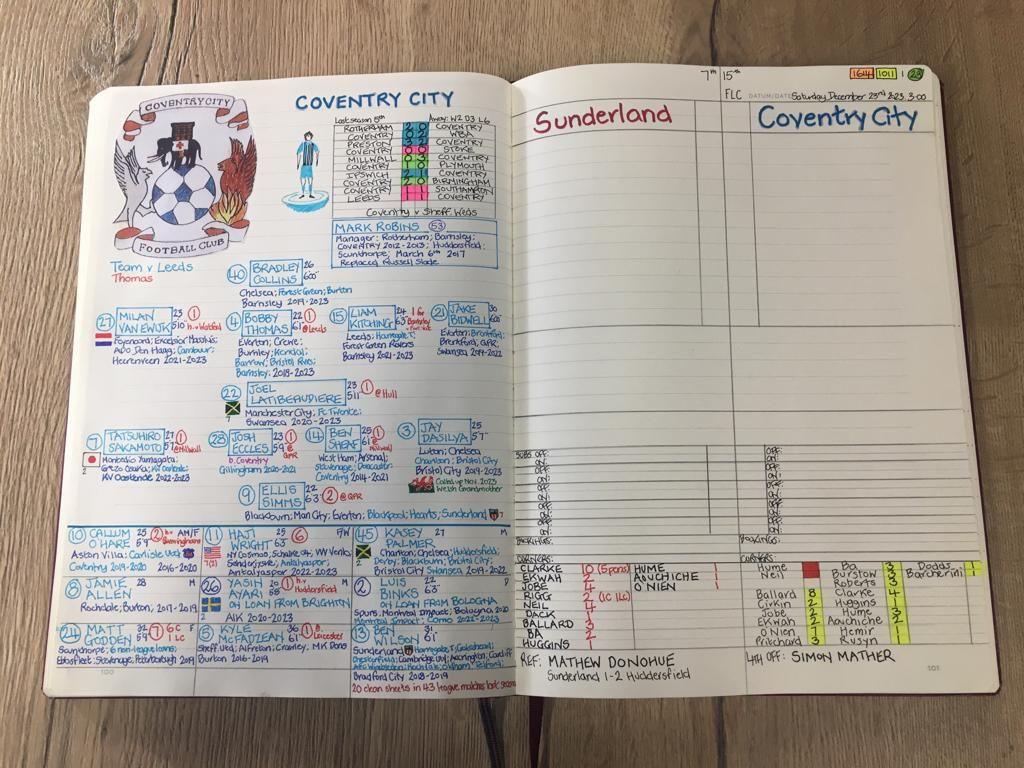 COVENTRY CITY
FOOTBALL CLUB
COVENTRY CITY
Last season 5th Away: W2 D3 L6
ROTHERHAM 2 0 COVENTRY
COVENTRY 0 2 WBA
PRESTON 3 2 COVENTRY
COVENTRY 0 0 STOKE
MILLWALL 0 3 COVENTRY
COVENTRY 1 0 PLYMOUTH
IPSWICH 2 1 COVENTRY
COVENTRY 2 0 BIRMINGHAM
LEEDS 1 1 COVENTRY
COVENTRY 1 1 SOUTHAMPTON
Coventry v Sheff Weds
MARK ROBINS 53
Manager: Rotherham; Barnsley;
COVENTRY 2012-2013; Huddersfield;
Scunthorpe; March 6th 2017
Replaced Russell Slade
Team v Leeds
Thomas
40 BRADLEY COLLINS 26 6'00"
Chelsea; Forest Green; Burton
Barnsley 2019-2023
27 MILAN VAN EWIJK 23 5'10 1 h.v Watford
Feyenoord; Excelsior Maasluis;
ADO Den Haag; Cambuur;
Heerenveen 2021-2023
4 BOBBY THOMAS 22 6'1 1 @Leeds
Everton; Crewe
Burnley; Kendal;
Barrow; Bristol Rvrs;
Barnsley 2018-2023
15 LIAM KITCHING 24 6'3 1 for Barnsley
Leeds; Harrogate T;
Forest Green Rovers
Barnsley 2021-2023
21 JAKE BIDWELL 30 6'00"
Everton; Brentford;
Brentford; QPR;
Swansea 2019-2022
22 JOEL LATIBEAUDIERE 23 5'11 1 @Hull
Manchester City; Fc Twente;
Swansea 2020-2023
7 TATSUHIRO SAKAMOTO 27 5'7 1 @Millwall
Montedio Yamagata;
Cerezo Osaka; KV Oostende
KV Oostende 2022-2023
28 JOSH ECCLES 23 5'9 1 @ QPR
b. Coventry
Gillingham 2020-2021
14 BEN SHEAF 25 6'1 1 @ Millwall
West Ham; Arsenal;
Stevenage; Doncaster;
Coventry 2014-2021
3 JAY DASILVA 25 5'7"
Luton; Chelsea
Charlton; Bristol City
Bristol City 2019-2023
Called up Nov. 2023
Welsh Grandmother
9 ELLIS SIMMS 22 6'3" 2 @QPR
Blackburn; Man City; Everton; Blackpool; Hearts; Sunderland 7
10 CALLUM O'HARE 25 5'9 2 h.v Birmingham AM/F
Aston Villa; Carlisle Utd
Coventry 2019-2020 2016-2020
11 HAJI WRIGHT 25 6'3 6 F/W
NY Cosmos; Schalke 04; VW Venlo
Sonderjyske; Antalyaspor;
Antalyaspor 2022-2023
45 KASEY PALMER 27 M
Charlton; Chelsea; Huddersfield;
Derby; Blackburn; Bristol City;
Bristol City Swansea 2019-2022
8 JAMIE ALLEN 28 M
Rochdale; Burton; 2017-2019
26 YASIN AYARI 20 1 h.v Huddersfield M
ON LOAN FROM BRIGHTON
AIK 2020-2023
2 LUIS BINKS 22 6'3 D
ON LOAN FROM BOLOGNA
Spurs; Montreal Impact; Bologna 2020
Montreal Impact; Como 2022-2023
24 MATT GODDEN 32 5'9 7 6C 1LC F
Scunthorpe; 6 non-league loans;
Ebbsfleet; Stevenage; Peterborough 2019
5 KYLE McFADZEAN 36 6'1 1 @ Leicester
Sheff Utd; Alfreton; Crawley; MK Dons
Burton 2016-2019
13 BEN WILSON 31 6'1
Sunderland Harrogate T; Gateshead;
Chesterfield; Cambridge Utd; Accrington; Cardiff
AFC Wimbledon; Rochdale; Oldham; Telford;
Bradford City 2018-2019
20 clean sheets in 43 league matches last season
100
7th 15th
1614 1011 1 23
FLC DATUM/DATE Saturday, December 23rd 2023, 3:00
Sunderland Coventry City
SUBS OFF:
ON:
OFF:
ON:
OFF:
ON:
OFF:
ON:
OFF:
ON:
OFF:
ON:
OFF:
ON:
OFF:
ON:
OFF:
ON:
OFF:
ON:
BOOKINGS: BOOKINGS:
CORNERS: CORNERS:
CLARKE 10 (5 pens) HUME 1
EKWAH 2 AOUCHICHE 1
JOBE 4 O'NIEN 1
RIGG 2 (1C 1LC)
NEIL 4
DACK 1
BALLARD 3
BA 2
HUGGINS 1
Hume Ba 3 Dodds 1
Neil Burstow 3 Barcherini 1
Roberts 3
Ballard 8 Clarke 4
Cirkin 2 Huggins 1
Jobe 2 Hume 3
Ekwah 2 Aouchiche 2
O'Nien 7 Hemir 1
Pritchard 3 Rusyn 1
REF: MATHEW DONOHUE
Sunderland 1-2 Huddersfield
4TH OFF: SIMON MATHER
101